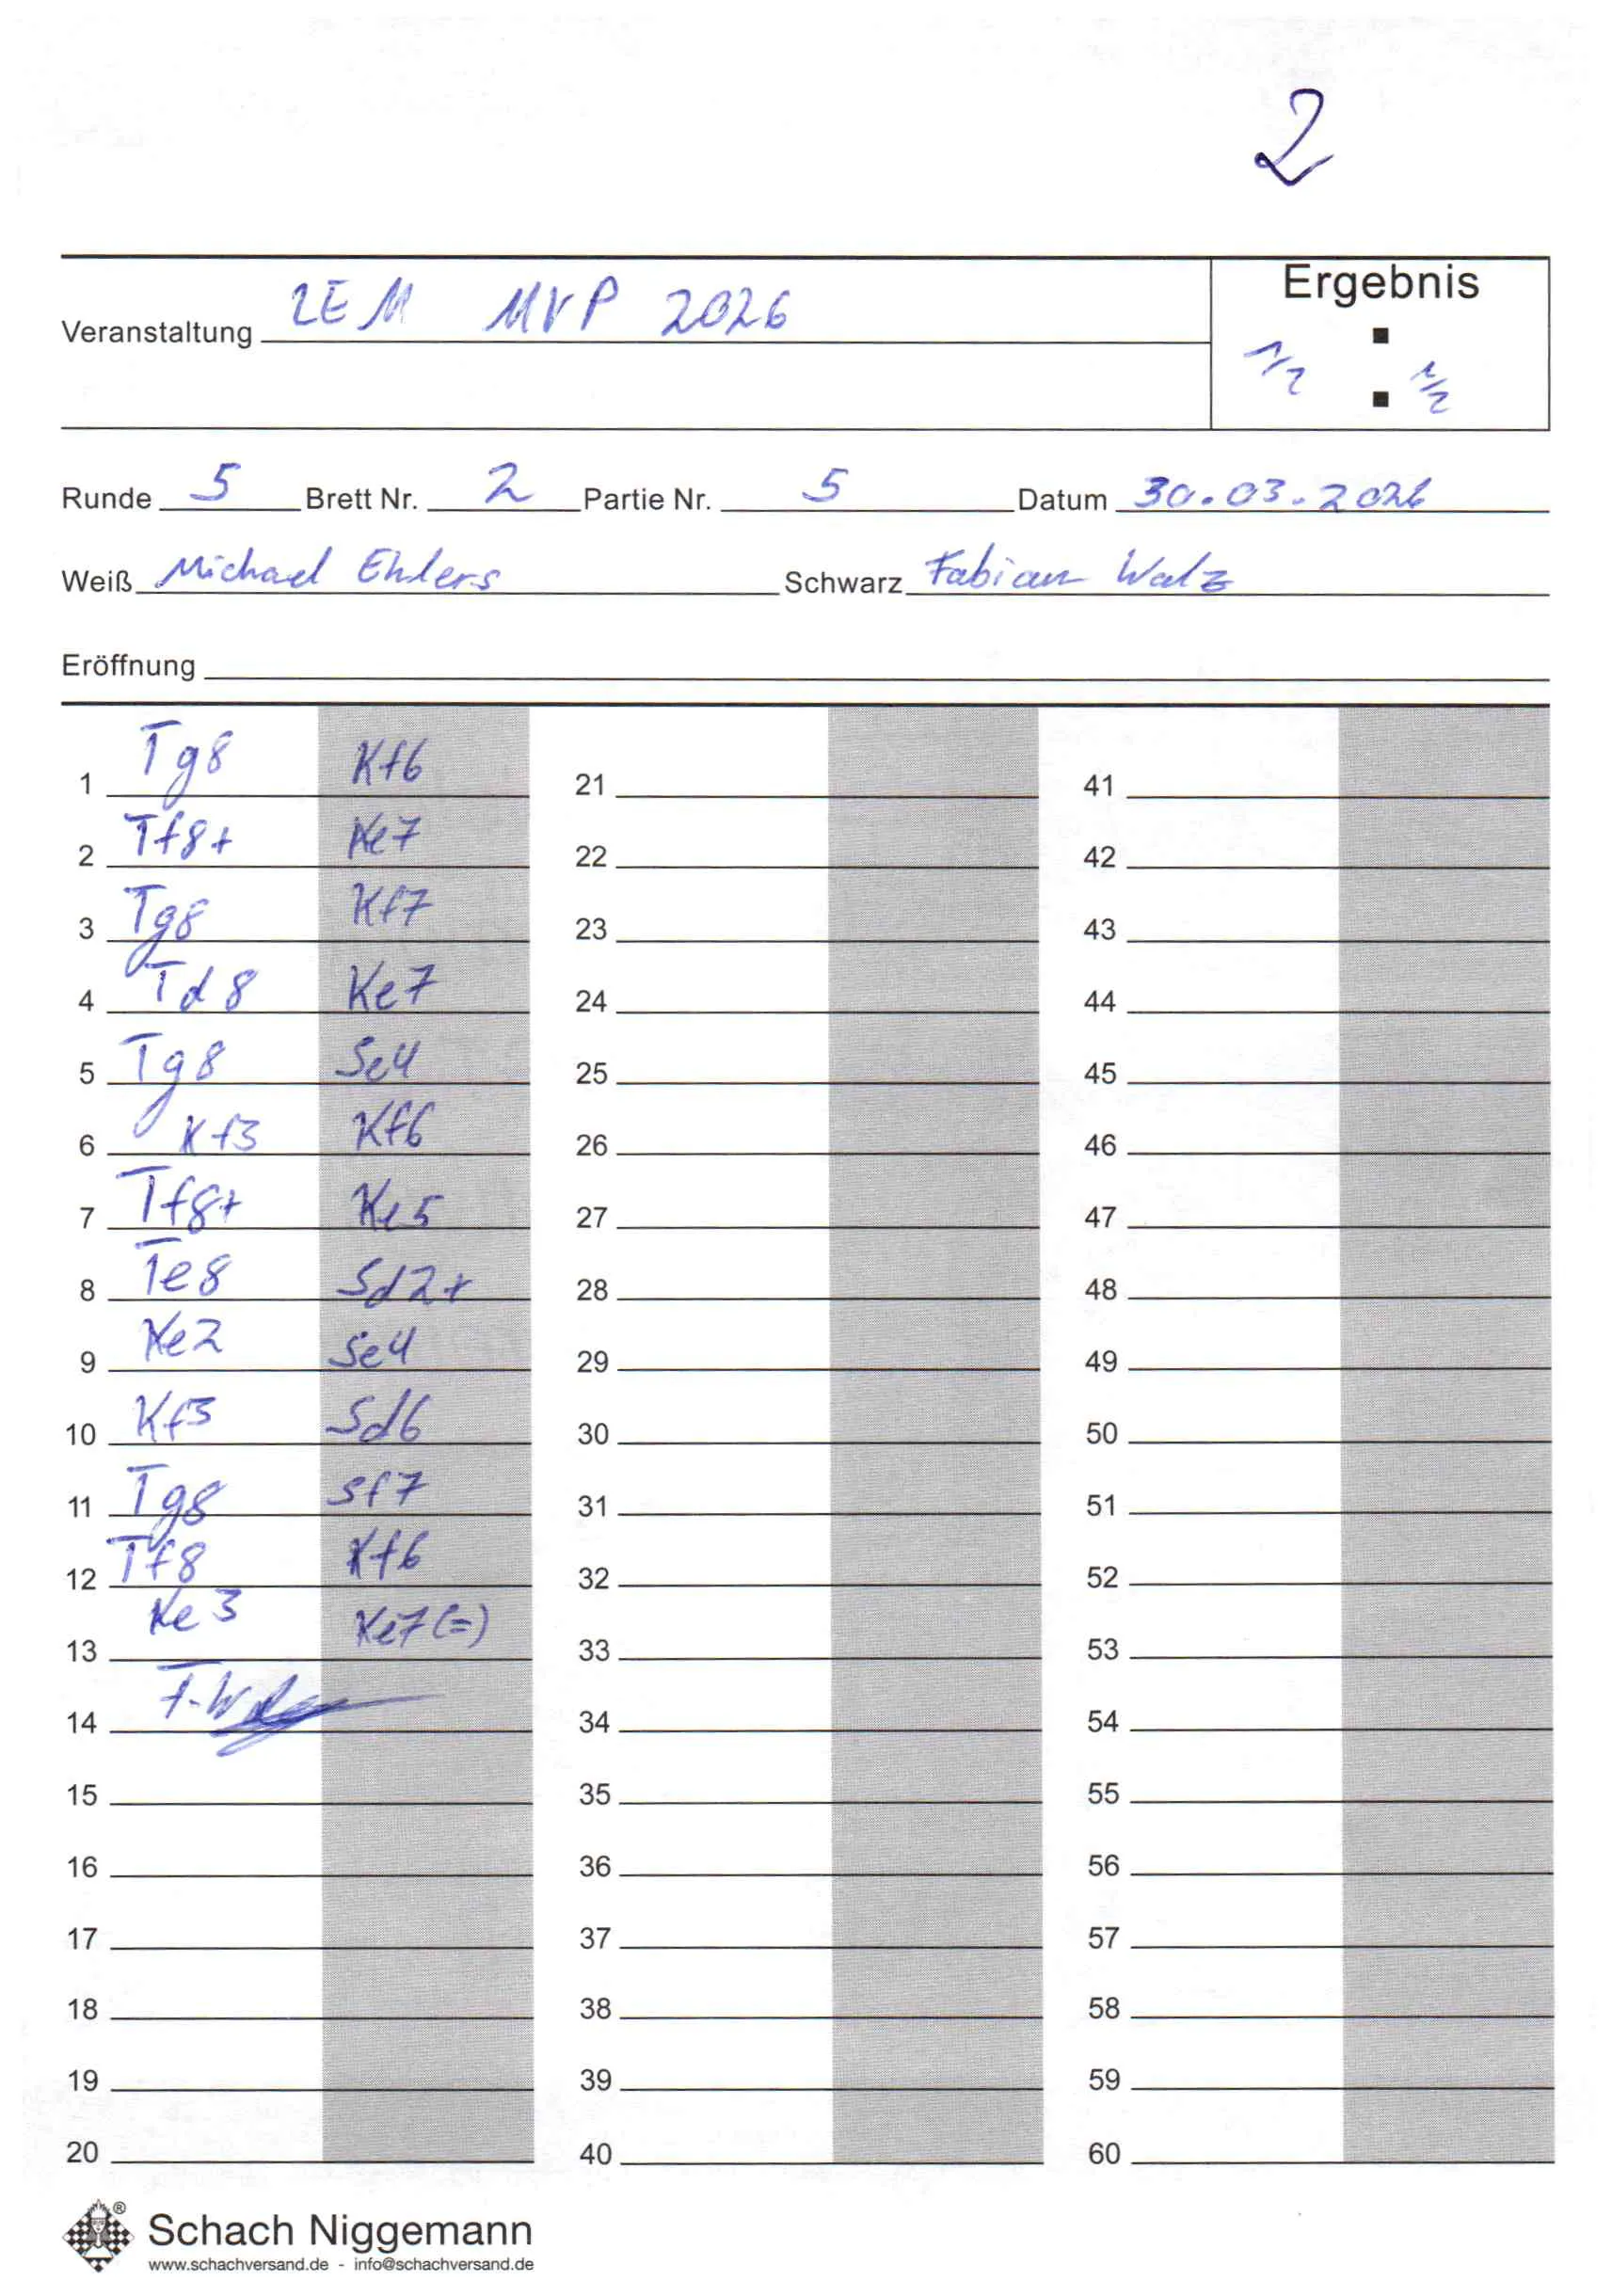 2
Veranstaltung LEM MVP 2026
Ergebnis
1/2 : 1/2
Runde 5 Brett Nr. 2 Partie Nr. 5 Datum 30.03.2026
Weiß Michael Ehlers Schwarz Fabian Walz
Eröffnung
1 Tg8 Kf6 21 41
2 Tf8+ Ke7 22 42
3 Tg8 Kf7 23 43
4 Td8 Ke7 24 44
5 Tg8 Se4 25 45
6 Kf3 Kf6 26 46
7 Tf8+ Ke5 27 47
8 Te8 Sd2+ 28 48
9 Ke2 Se4 29 49
10 Kf3 Sd6 30 50
11 Tg8 Sf7 31 51
12 Tf8 Kf6 32 52
13 Ke3 Ke7(=) 33 53
14 34 54
15 35 55
16 36 56
17 37 57
18 38 58
19 39 59
20 40 60
Schach Niggemann
www.schachversand.de - info@schachversand.de